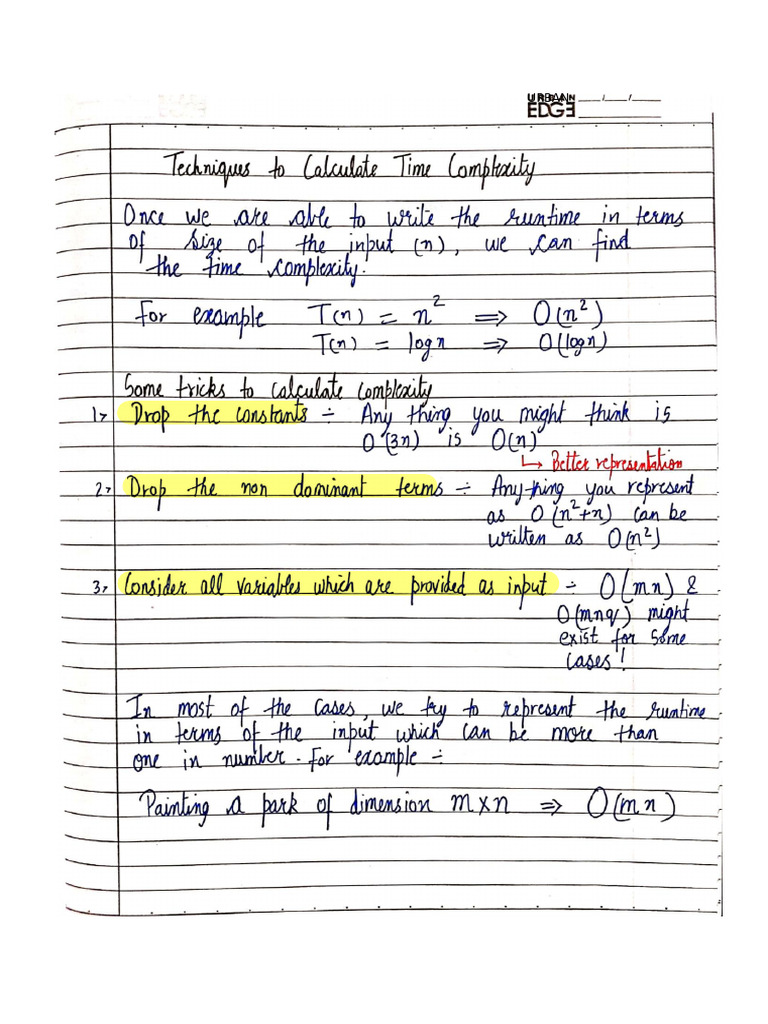 URBAN EDGE __/__/__
Techniques to Calculate Time Complexity
Once we are able to write the runtime in terms
of size of the input (n), we can find
the time complexity.
For example T(n) = n² ⇒ O(n²)
T(n) = logn ⇒ O(logn)
Some tricks to calculate complexity
1> Drop the constants ÷ Any thing you might think is
O(3n) is O(n)
↳ Better representation
2> Drop the non dominant terms ÷ Any thing you represent
as O(n²+n) can be
written as O(n²)
3> Consider all variables which are provided as input ÷ O(mn) &
O(mnq) might
exist for some
cases!
In most of the cases, we try to represent the runtime
in terms of the input which can be more than
one in number. For example ÷
Painting a park of dimension m×n ⇒ O(mn)